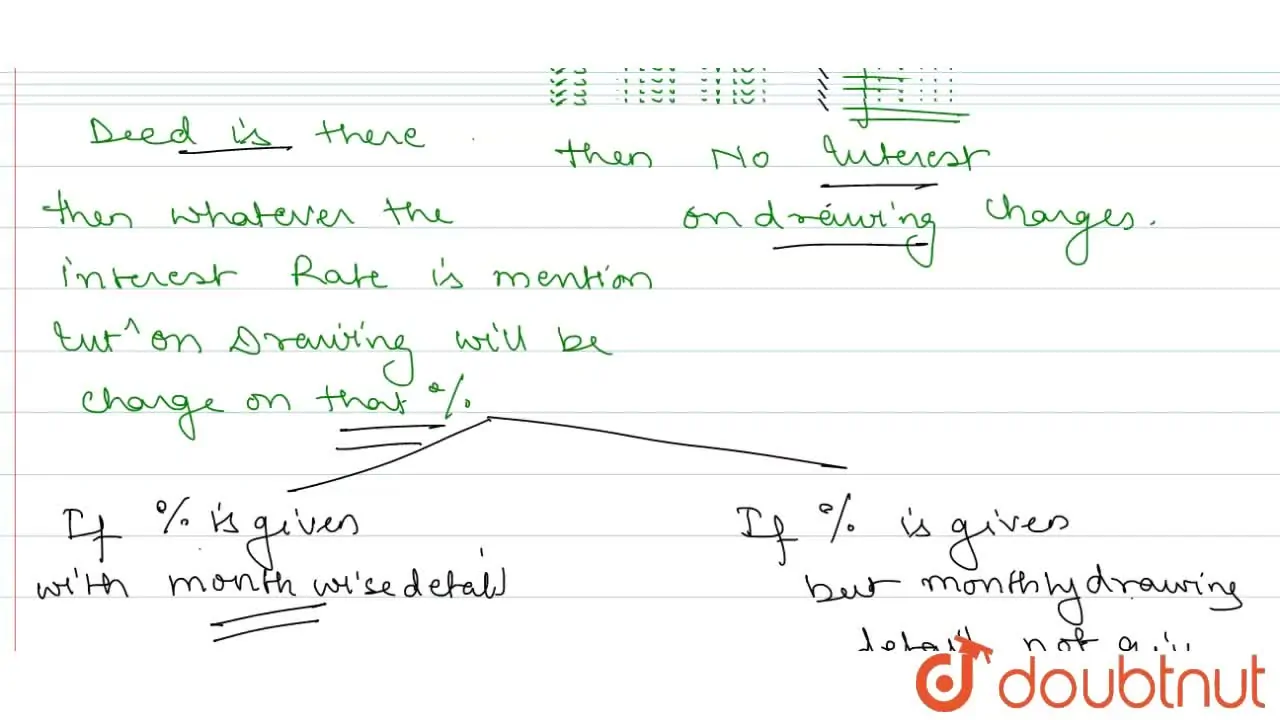 Deed is there
then whatever the
interest Rate is mention
Int^ on Drawing will be
charge on that %.
then No Interest
on drawing charges.
If % is given
with month wise detail
If % is given
but monthly drawing
detail not
doubtnut